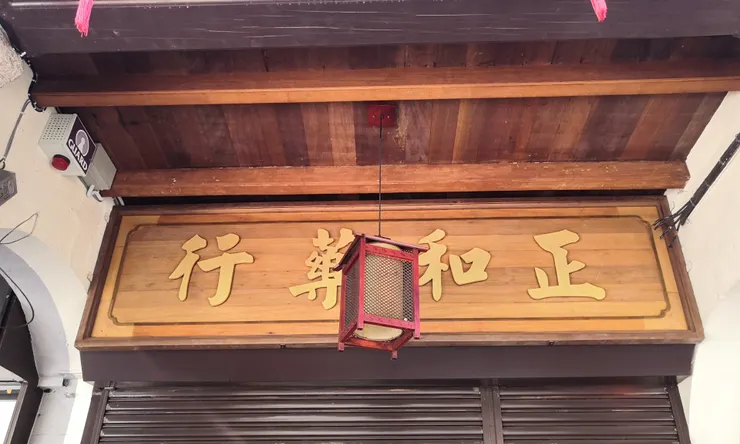 正和藥行